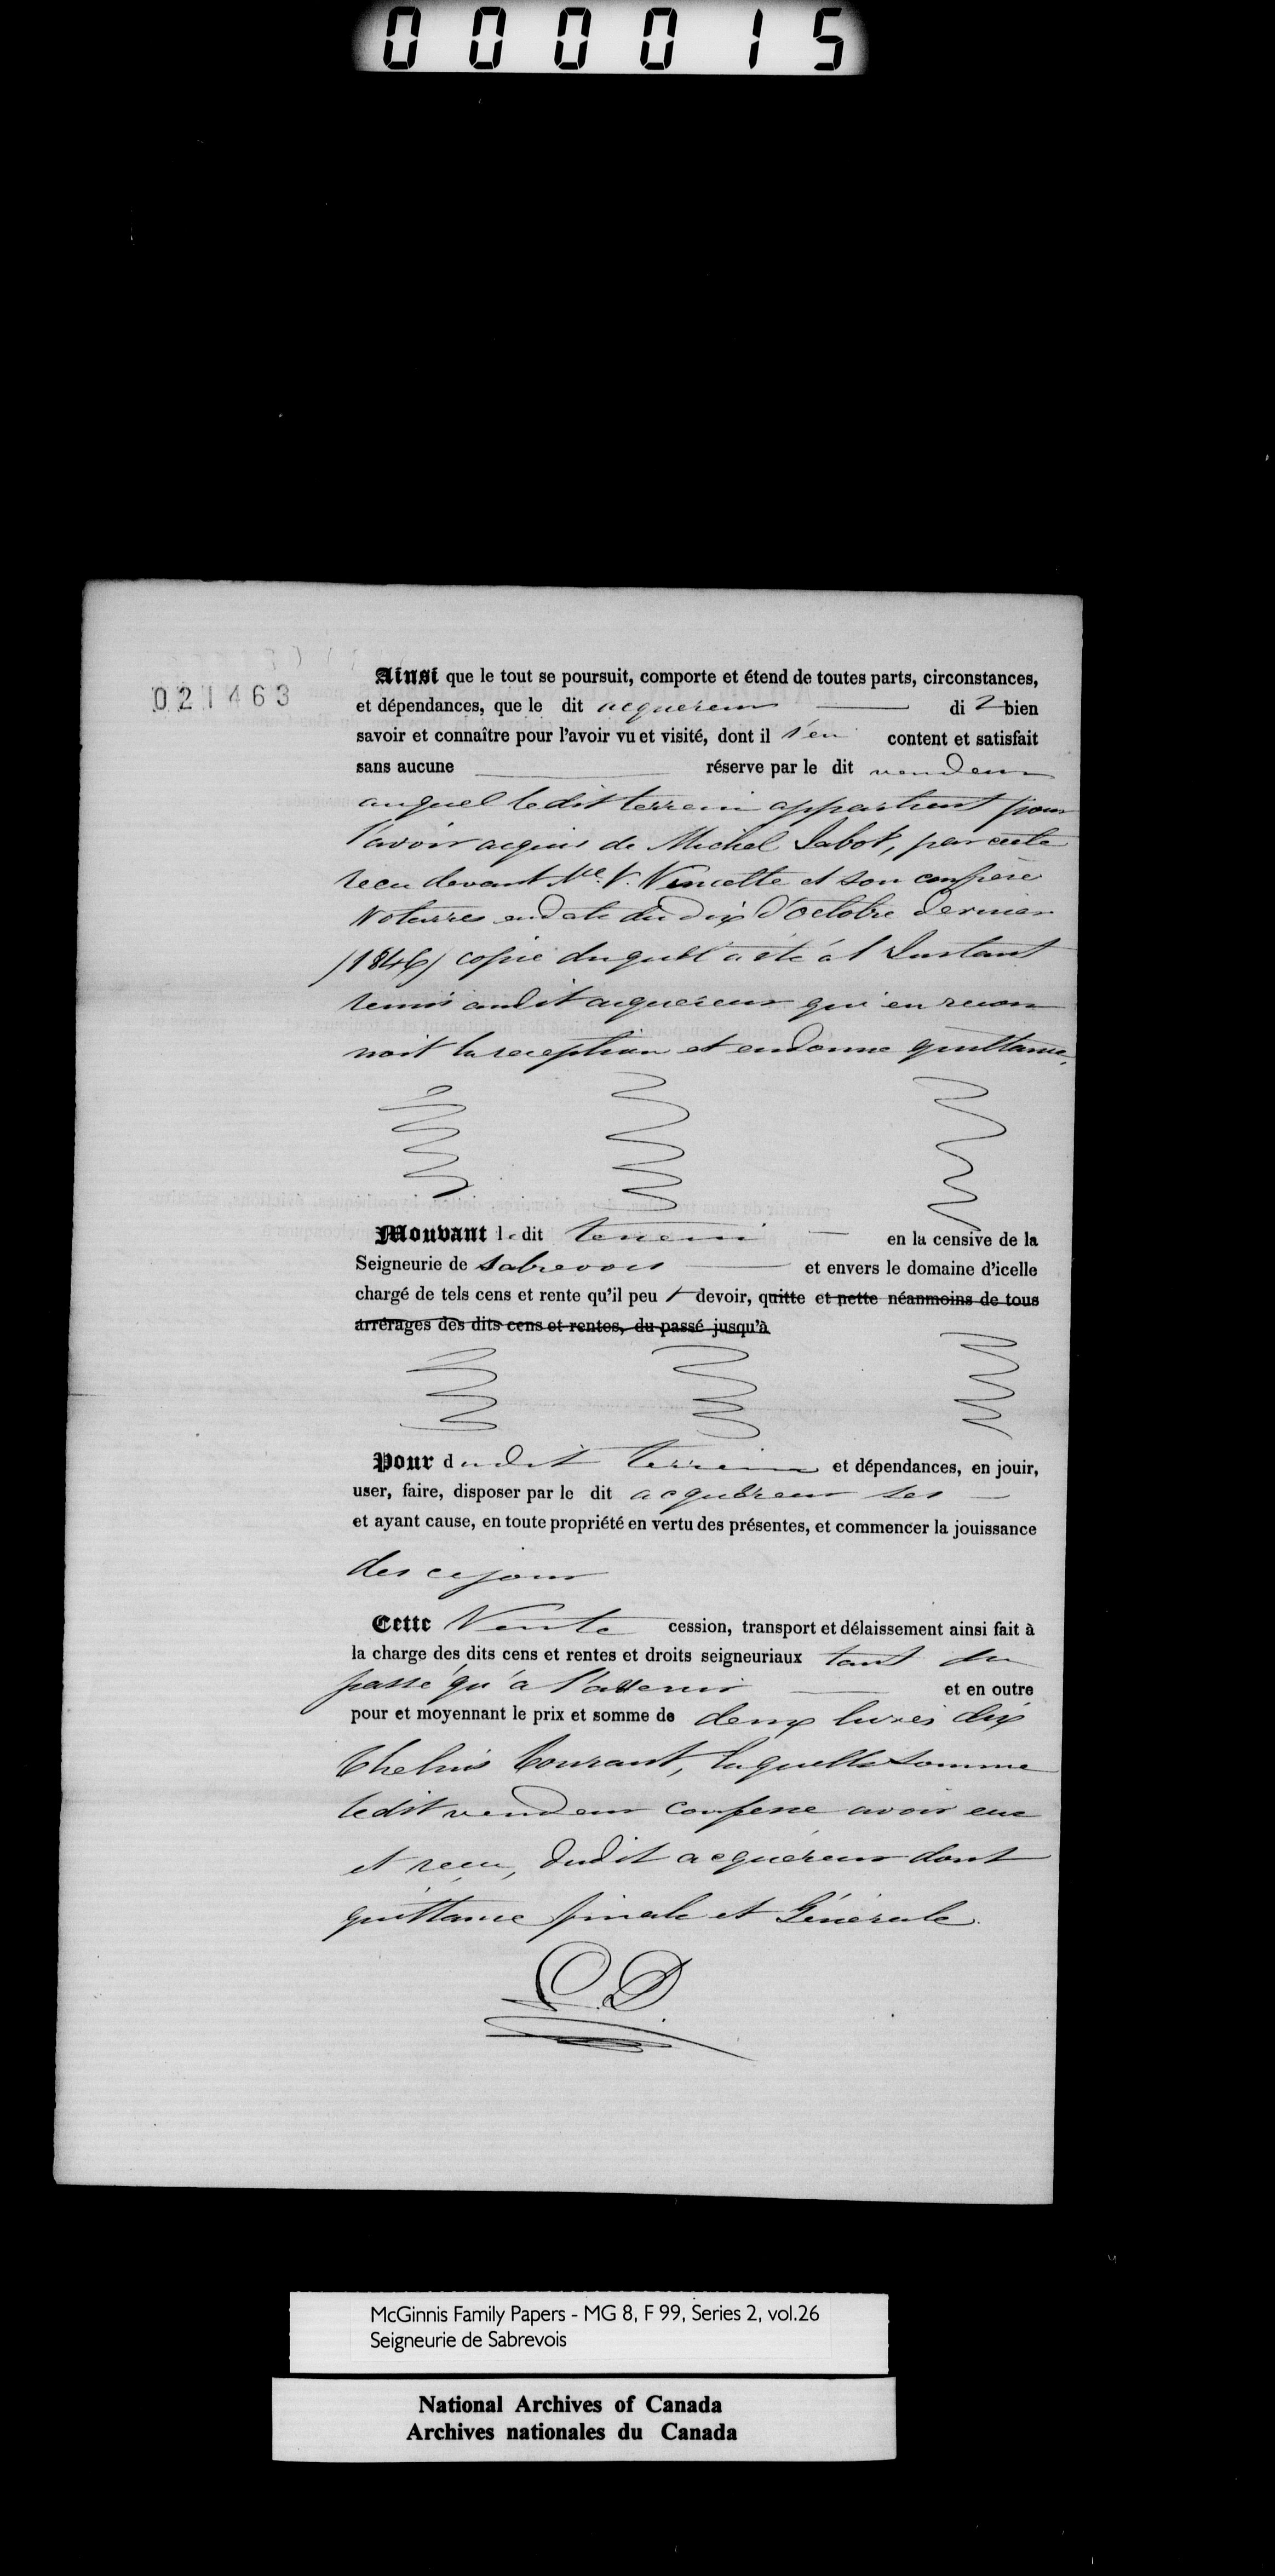 000015
021463
Ainsi que le tout se poursuit, comporte et étend de toutes parts, circonstances,
et dépendances, que le dit acquereur di t bien
savoir et connaître pour l'avoir vu et visité, dont il s'en content et satisfait
sans aucune réserve par le dit vendeur
auquel ledit terrein appartient pour
l'avoir acquis de Michel Sabot, par acte
recu devant Me. V. Vincelette et son confrère
Notaires en date du dix d'octobre dernier
/1846/ copie duquel a été á l Instant
remis audit acquereur qui en recon
noit la reception et en donne quittance,
Mouvant le dit terrein en la censive de la
Seigneurie de Sabrevois et envers le domaine d'icelle
chargé de tels cens et rente qu'il peu t devoir, quitte et nette néanmoins de tous
arrérages des dits cens et rentes, du passé jusqu'à
Pour dudit terrein et dépendances, en jouir,
user, faire, disposer par le dit acquéreur ses
et ayant cause, en toute propriété en vertu des présentes, et commencer la jouissance
des ce jour
Cette Vente cession, transport et délaissement ainsi fait à
la charge des dits cens et rentes et droits seigneuriaux tant du
passé qu'à l'avenir et en outre
pour et moyennant le prix et somme de deux livres dix
Chelins Courant, laquelle somme
ledit vendeur confesse avoir eue
et recue, dudit acquéreur dont
quittance finale et Générale.
C.D.
McGinnis Family Papers - MG 8, F 99, Series 2, vol.26
Seigneurie de Sabrevois
National Archives of Canada
Archives nationales du Canada